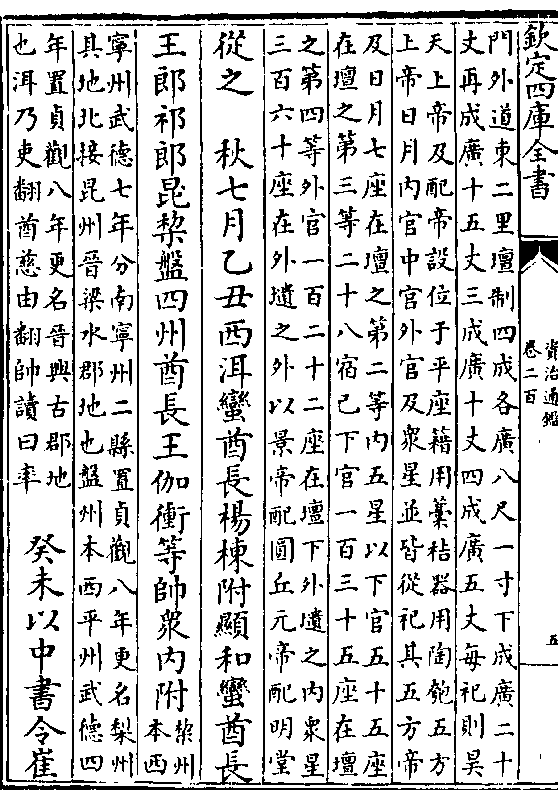 欽定四庫全書
資治通鑑
卷二百
五
門外道東二里壇制四成各廣八尺一寸下成廣二十
丈再成廣十五丈三成廣十丈四成廣五丈每祀則昊
天上帝及配帝設位于平座籍用藁秸器用陶匏五方
上帝日月内官中官外官及衆星並皆從祀其五方帝
及日月七座在壇之第二等内五星以下官五十五座
在壇之第三等二十八宿已下官一百三十五座在壇
之第四等外官一百二十二座在壇下外壝之内衆星
三百六十座在外壝之外以景帝配圓丘元帝配明堂
從之　秋七月乙丑西洱蠻酋長楊棟附顯和蠻酋長
王郎祁郎昆棃盤四州酋長王伽衝等帥衆内附
棃州
本西
寧州武德七年分南寧州二縣置貞觀八年更名棃州
其地北接昆州晉梁水郡地也盤州本西平州武德四
年置貞觀八年更名晉興古郡地
也洱乃吏翻酋慈由翻帥讀曰率
癸未以中書令崔